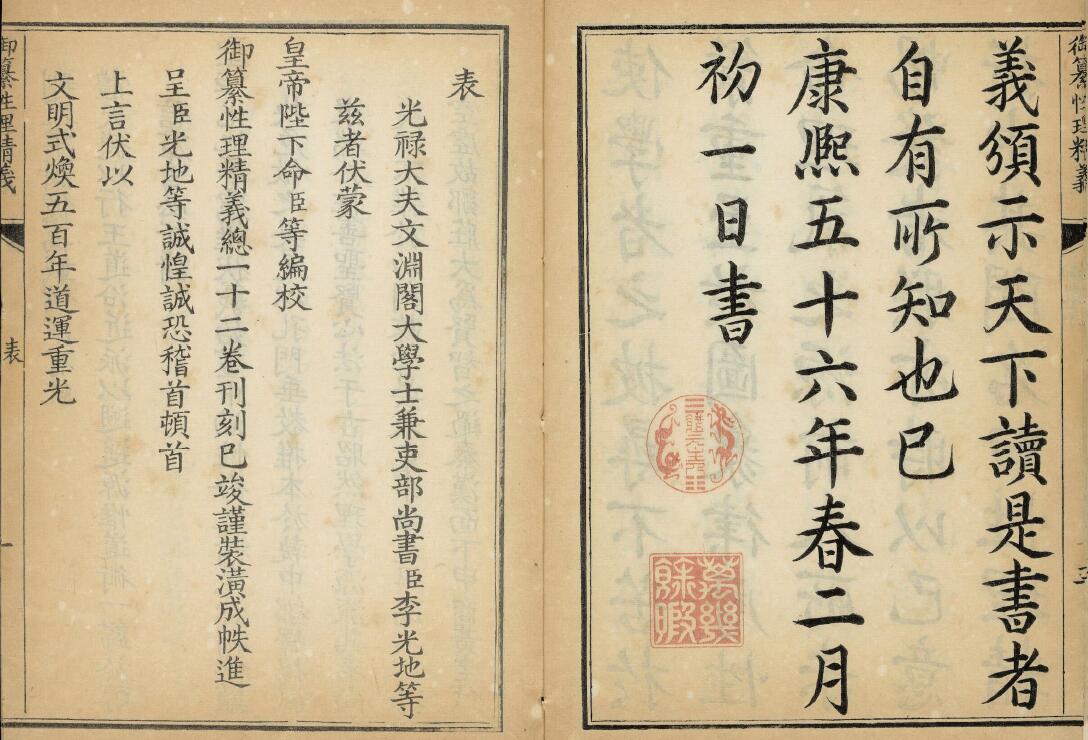 御纂性理精義
義頒示天下讀是書者
自有所知也已
康熙五十六年春二月
初一日書
萬幾餘暇
表
光禄大夫文淵閣大學士兼吏部尚書臣李光地等
兹者伏蒙
皇帝陛下命臣等編校
御纂性理精義總一十二卷刊刻已竣謹裝潢成帙進
呈臣光地等誠惶誠恐稽首頓首
上言伏以
文明式煥五百年道運重光
御纂性理精義
表
一